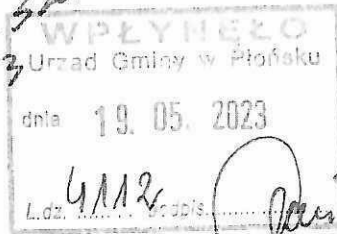 WPŁYNĘŁO
Urząd Gminy w Płońsku
dnia 19. 05. 2023
L.dz. 4112 Podpis